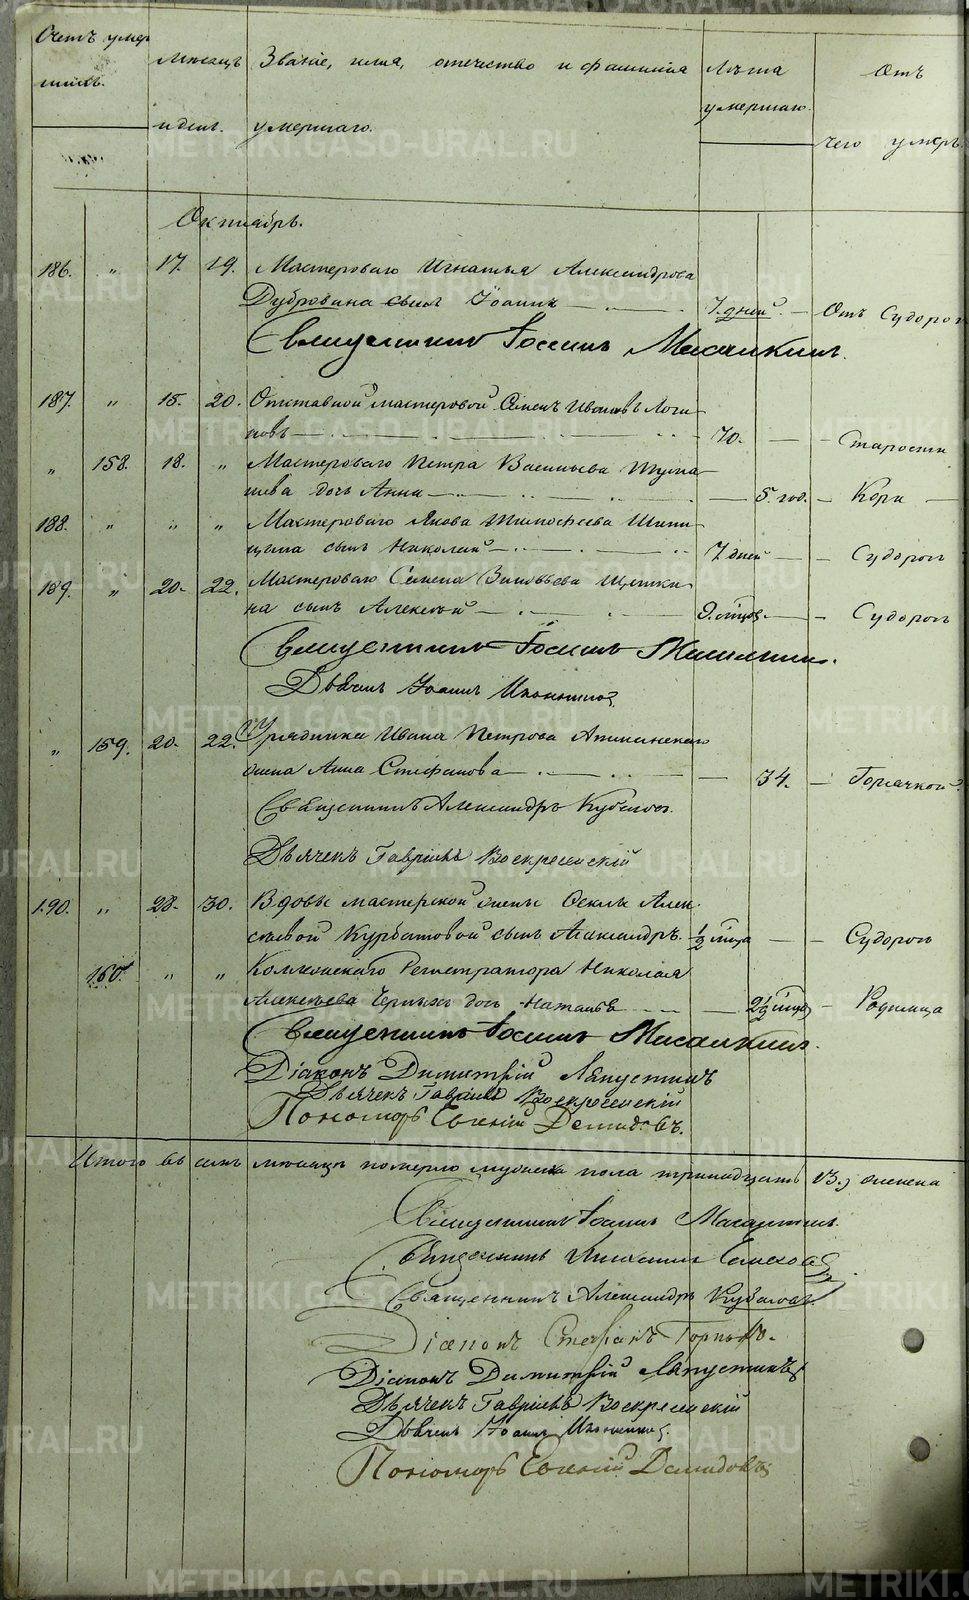 Счетъ умер
Мѣсяцъ Званіе, имя, отечество и фамилія Лѣта Отъ
шихъ. умершаго.
и день. умершаго. чего умеръ
Октябрь.
186. " 17. 19. Мастероваго Игнатья Александрова
Дубровина сынъ Іоаннъ 7. дней. Отъ Судорог
Священникъ Іоаннъ
187. " 15. 20. Отставной мастеровой Семенъ Ивановъ Логи
новъ 70. Старости
" 158. 18. " Мастероваго Петра Васильева
дочь Анна 5. год. Кори
188. " " " Мастероваго Якова Тимофеева
сынъ Николай 7 дней Судорогъ
189. " 20. 22. Мастероваго Семена Зиновьева
на сынъ Алексѣй 9. мѣсяц. Судорогъ
Священникъ Іоаннъ
Дьячекъ Іоаннъ
" 159. 20. 22. Урядника Ивана Петрова
жена Анна Стефанова 34. Горячкой
Священникъ Александръ
Дьячекъ Гавріилъ Воскресенскій
190. " 28. 30. Вдовы мастерской жены Алек
сѣевой Курбатовой сынъ Александръ. ½ мѣсяца Судорогъ
160. " " Коллежскаго Регистратора Николая
Алексѣева Черныхъ дочь Наталья 2½ мѣсяц Родимца
Священникъ Іоаннъ
Діаконъ Димитрій Ляпустинъ
Дьячекъ Гавріилъ Воскресенскій
Пономарь Евгеній Демидовъ.
Итого въ семъ мѣсяцѣ померло мужеска пола тринадцать 13., женска
Священникъ Іоаннъ
Священникъ
Священникъ Александръ
Діаконъ Стефанъ
Діаконъ Димитрій Ляпустинъ
Дьячекъ Гавріилъ Воскресенскій
Дьячекъ Іоаннъ
Пономарь Евгеній Демидовъ
METRIKI.GASO-URAL.RU